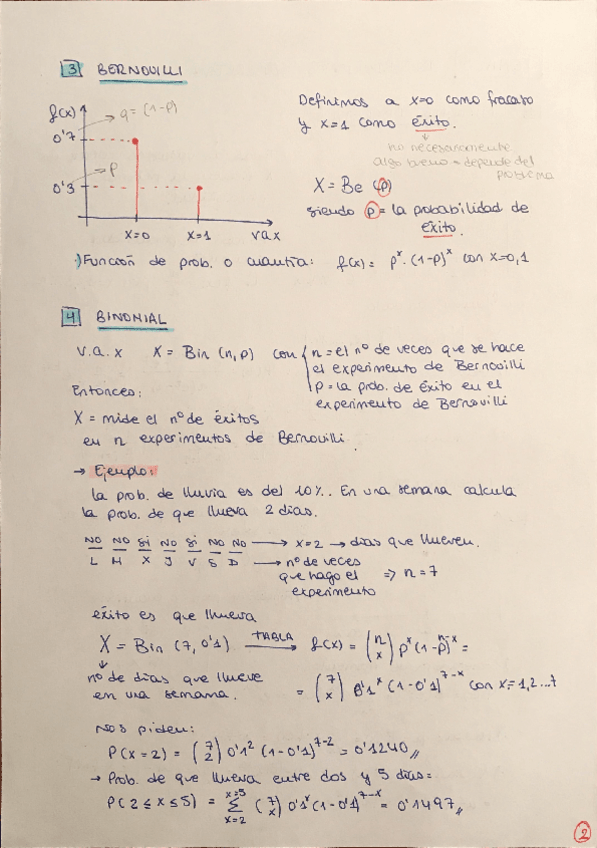 3 BERNOUILLI
f(x)
q = (1-p)
0'7
p
0'3
x=0 x=1 v.a x
Definimos a x=0 como fracaso
y x=1 como éxito.
no necesariamente
algo bueno - depende del
problema
X = Be (p)
siendo p = la probabilidad de
éxito.
·) Función de prob. o cuantía: f(x) = p^x · (1-p)^x con x=0,1
4 BINOMIAL
v.a. x X = Bin (n, p) con { n = el nº de veces que se hace
el experimento de Bernouilli
p = la prob. de éxito en el
experimento de Bernouilli
Entonces:
X = mide el nº de éxitos
en n experimentos de Bernouilli
→ Ejemplo:
la prob. de lluvia es del 10%. En una semana calcula
la prob. de que llueva 2 días.
NO NO Si NO Si NO NO → x=2 → días que llueven.
L M X J V S D → nº de veces
que hago el
experimento ⇒ n = 7
éxito es que llueva
X = Bin (7, 0'1) TABLA → f(x) = (n x) p^x (1-p)^n-x =
nº de días que llueve
en una semana.
= (7 x) 0'1^x (1-0'1)^7-x con x=1,2...7
Nos piden:
P(x=2) = (7 2) 0'1^2 (1-0'1)^7-2 = 0'1240 //
→ Prob. de que llueva entre dos y 5 días:
P(2 ≤ x ≤ 5) = x=5 Σ x=2 (7 x) 0'1^x (1-0'1)^7-x = 0'1497 //
2